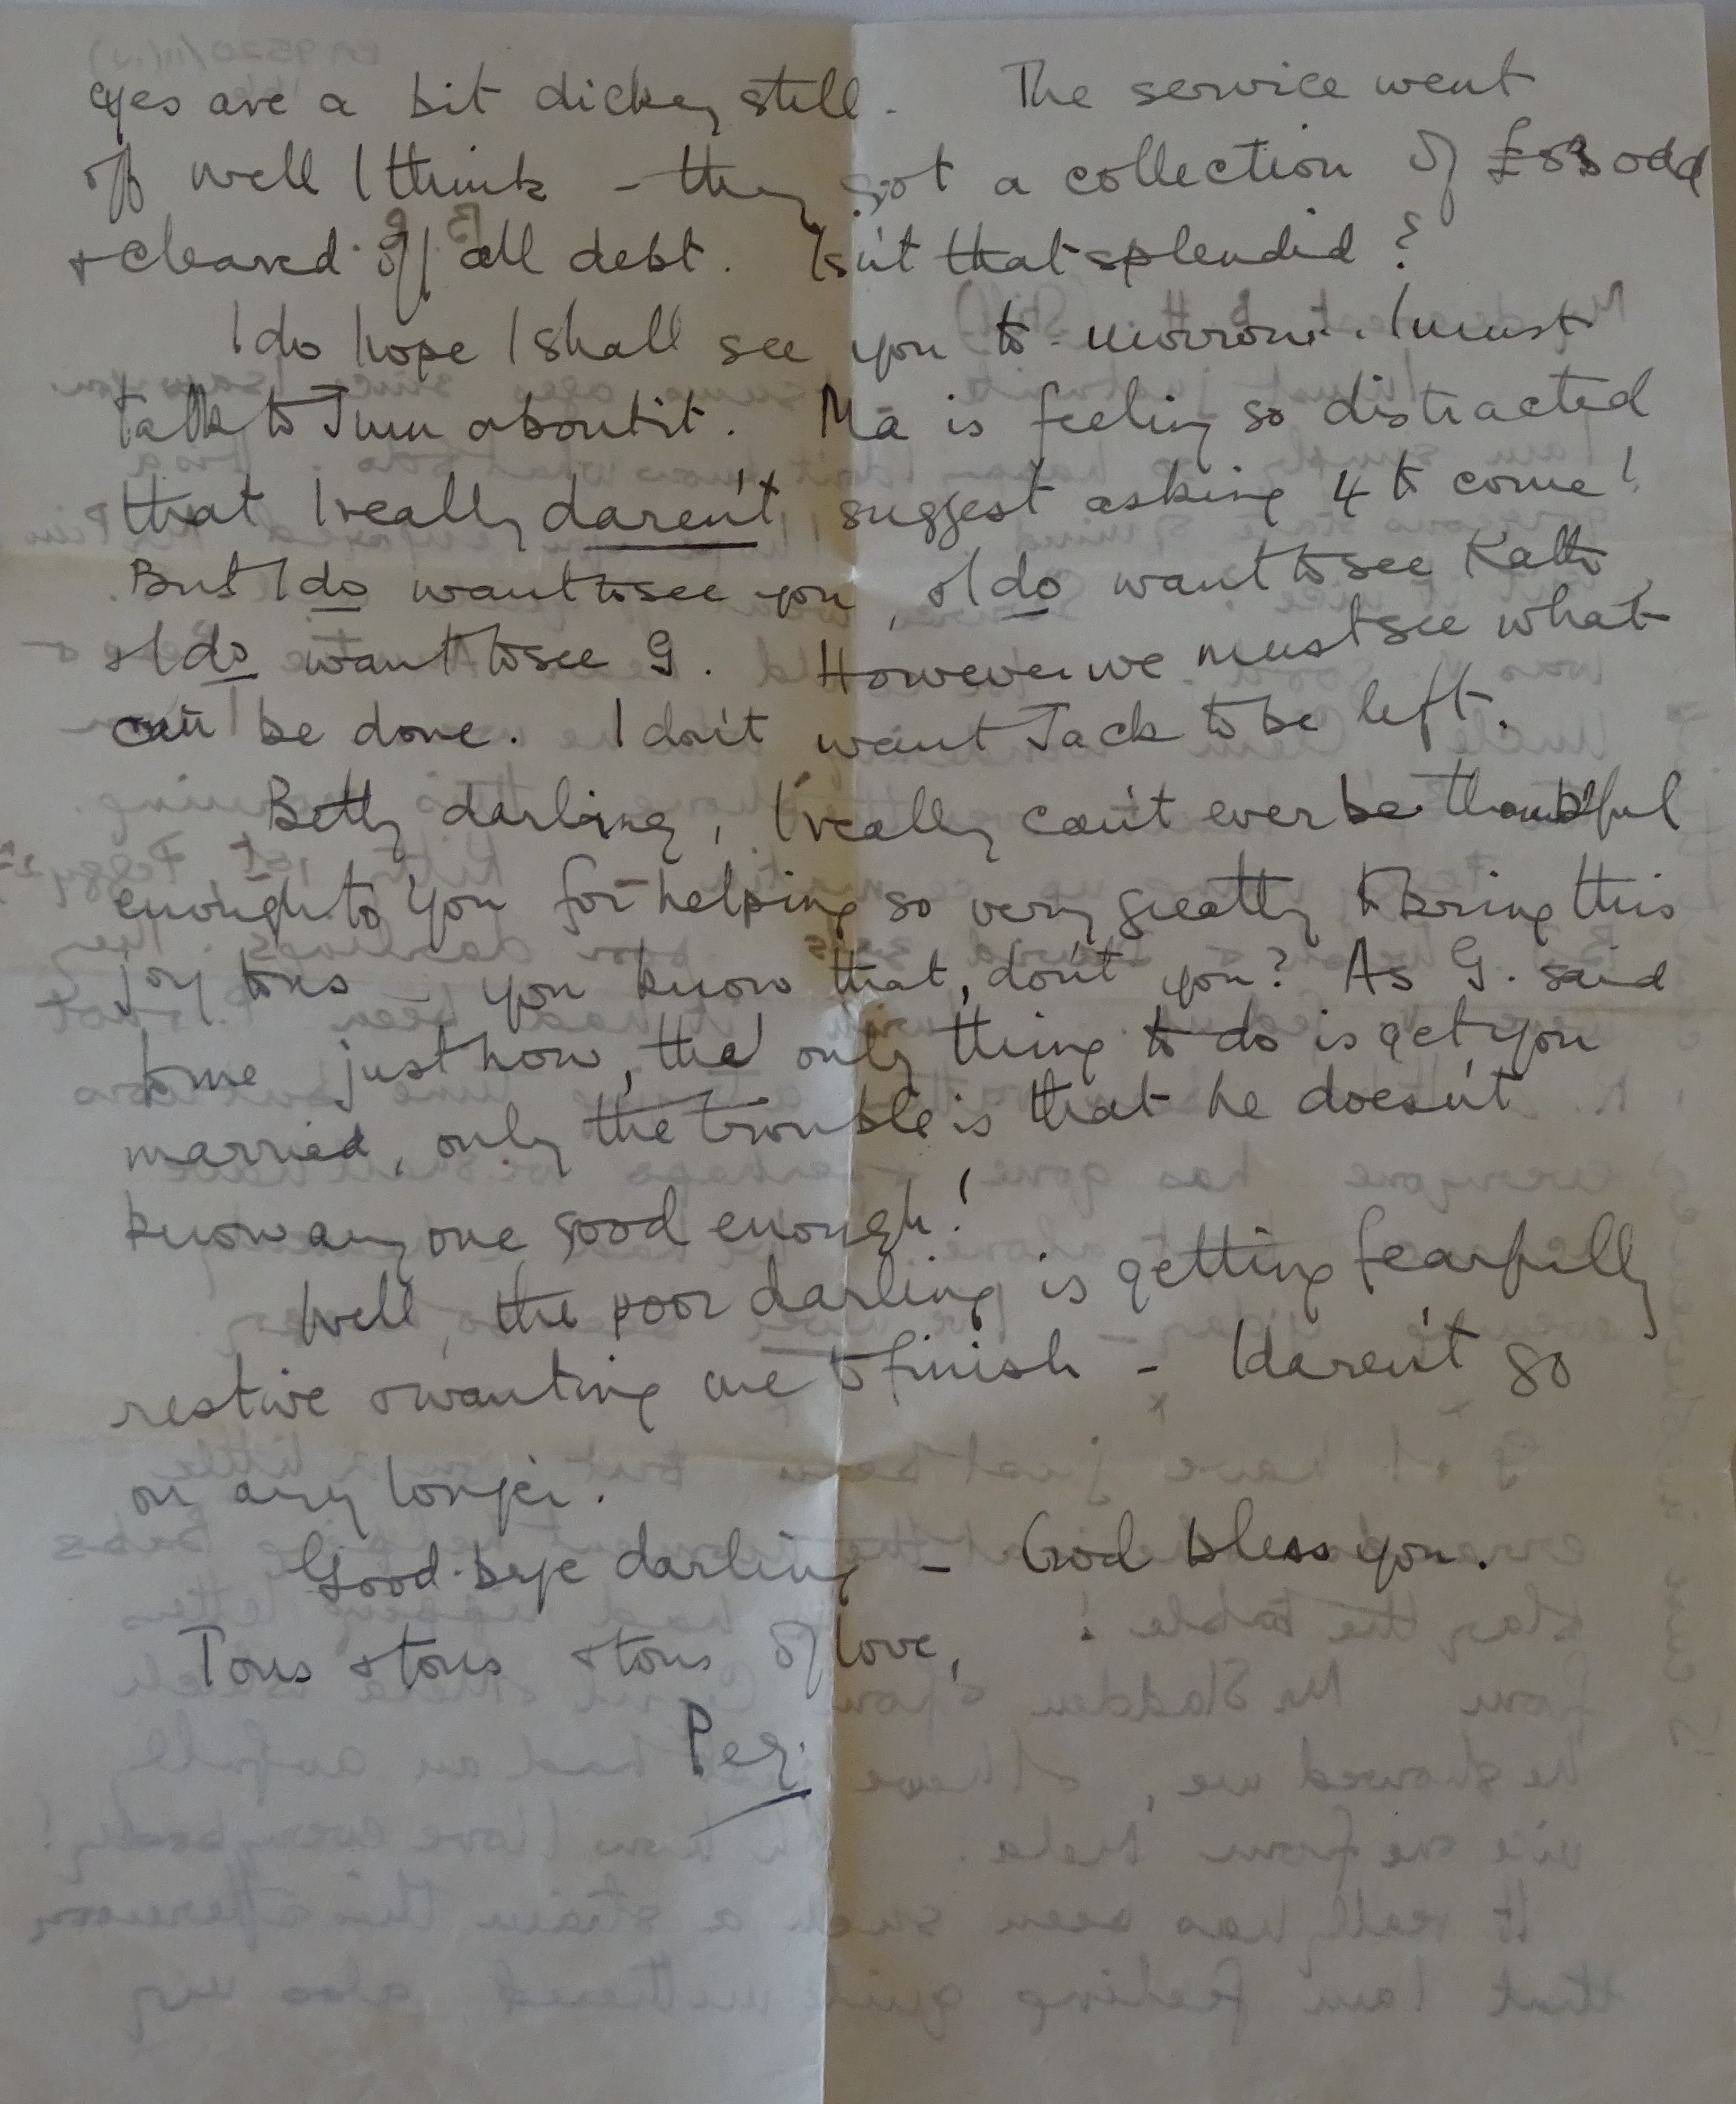 eyes are a bit dickey still. The service went
off well I think - they got a collection of odd
& cleared off all debt. Isn't that splendid?
I do hope I shall see you to-morrow. I must
talk to about it. Ma is feeling so distracted
that I really daren't suggest asking 4 to come!
But I do want to see you, & I do want to see
& I do want to see G. However we must see what
can be done. I don't want Jack to be left.
Betty darling, I really can't ever be thankful
enough to you for helping so very greatly to bring this
joy to us - you know that, don't you? As G. said
to me just now, the only thing to do is get you
married, only the trouble is that he doesn't
know any one good enough!
Well, the poor darling is getting fearfully
restive & wanting me to finish - I daren't go
on any longer.
Good-bye darling - God bless you.
Tons & tons & tons of love,
Peg.